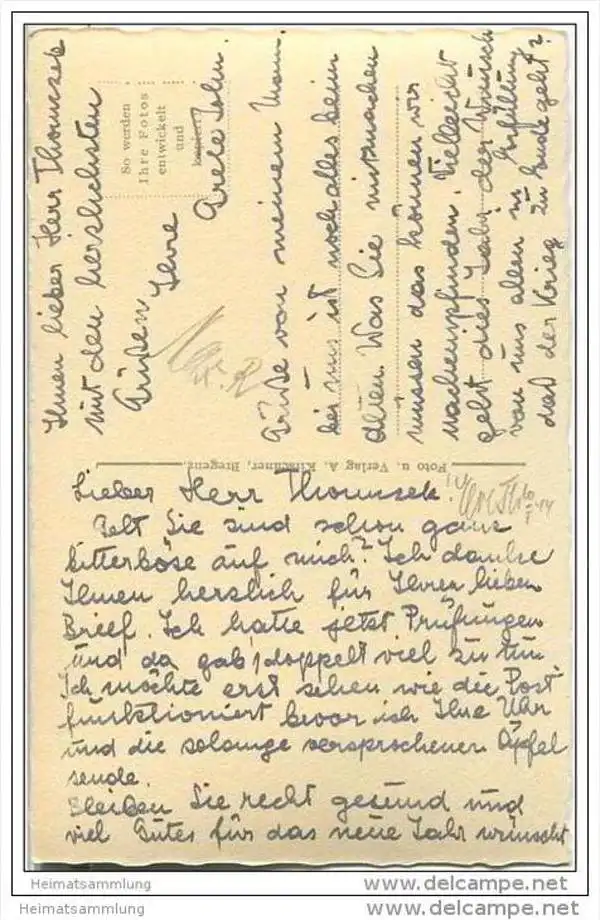 Lieber Herr Thomsek!
Gelt Sie sind schon ganz
bitterböse auf mich? Ich danke
Ihnen herzlich für Ihren lieben
Brief. Ich hatte jetzt Prüfungen
und da gab's doppelt viel zu tun
Ich möchte erst sehen wie die Post
funktioniert bevor ich Ihre Uhr
und die solange versprochenen Äpfel
sende.
Bleiben Sie recht gesund und
viel Gutes für das neue Jahr wünscht
Ihnen lieber Herr Thomsek
mit den herzlichsten
Grüßen Ihre
Grete
Grüße von meinem Mann.
bei uns ist noch alles beim
alten. Was Sie mitmachen
müssen das können wir
nachempfinden. Vielleicht
geht dies Jahr der Wunsch
von uns allen in Erfüllung
daß der Krieg zu Ende geht?
So werden
Ihre Fotos
entwickelt
und
kopiert
Foto u. Verlag A. Kirschner, Bregenz
Heimatsammlung
www.delcampe.net
Heimatsammlung
www.delcampe.net